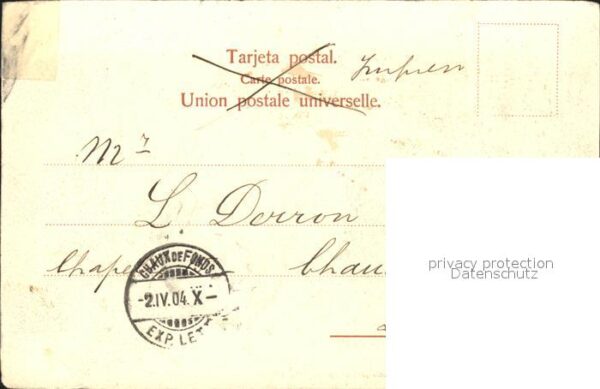 Tarjeta postal.
Carte postale.
Union postale universelle.
Mr
L Dorron
Chape
Chau
CHAUX DE FONDS
-2.IV.04.X-
EXP. LET
privacy protection
Datenschutz